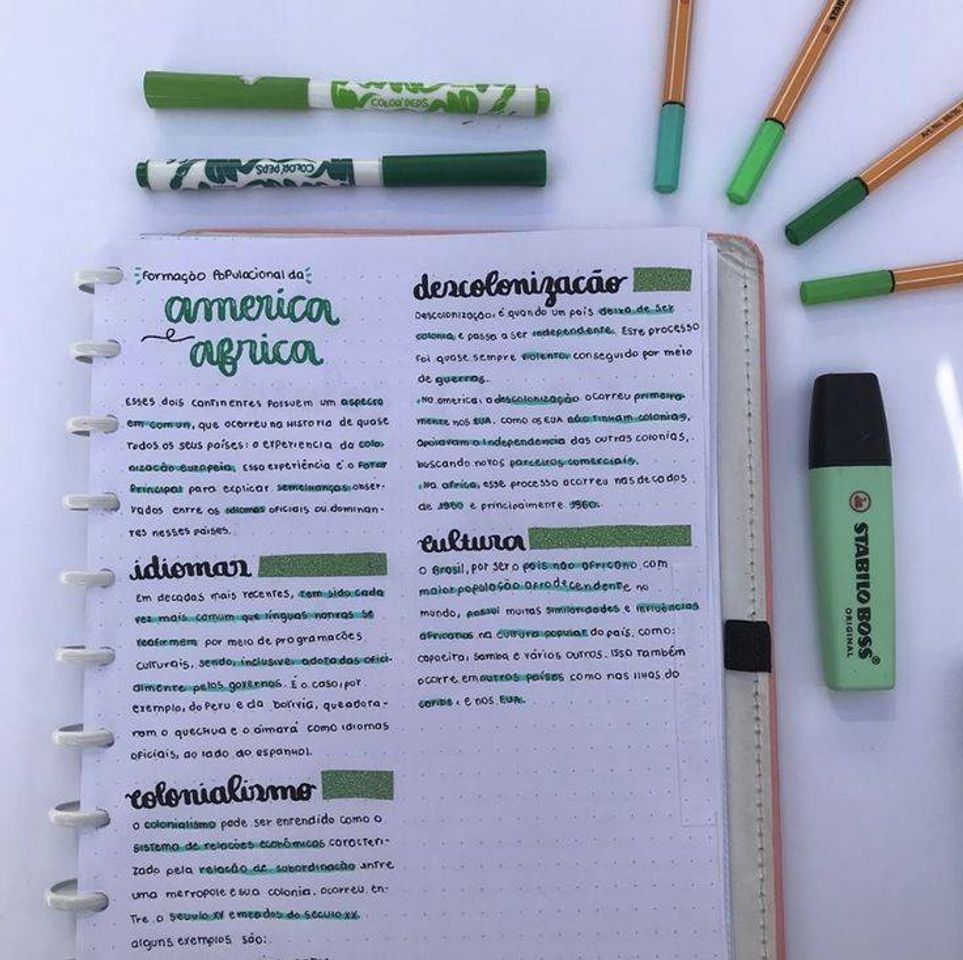 COLOR'PEPS
COLOR'PEPS
Formação Populacional da
america
e
africa
Esses dois continentes possuem um aspecto
em comum, que ocorreu na historia de quase
todos os seus países: a experiencia da colo-
nização europeia. Essa experiência é o fator
principal para explicar semelhanças obser-
vadas entre os idiomas oficiais ou dominan-
tes nesses países.
idiomas
Em decadas mais recentes, tem sido cada
vez mais comum que línguas nativas se
reafirmem por meio de programações
culturais, sendo, inclusive, adotadas ofici-
almente pelos governos. É o caso, por
exemplo, do Peru e da bolivia, que adota-
ram o quechua e o aimará como idiomas
oficiais, ao lado do espanhol.
colonialismo
O colonialismo pode ser entendido como o
sistema de relações econômicas caracteri-
zado pela relação de subordinação entre
uma metropole e sua colonia. ocorreu en-
tre o seculo XV e meados do seculo XX.
alguns exemplos são:
descolonização
Descolonização, é quando um país deixa de ser
colonia e passa a ser independente. Este processo
foi quase sempre violento, conseguido por meio
de guerras.
.Na america, a descolonização ocorreu primeira-
mente nos EUA. como os EUA não tinham colonias,
apoiavam a independencia das outras colonias,
buscando novos parceiros comerciais.
.Na africa, esse processo ocorreu nas decadas
de 1960 e principalmente 1960.
cultura
O Brasil, por ser o país não africano com
maior população afrodecendente no
mundo, possui muitas similaridades e influências
africanas na cultura popular do país, como:
capoeira, samba e vários outros. Isso também
ocorre em outros países como nas ilhas do
caribe, e nos EUA.
STABILO BOSS®
ORIGINAL